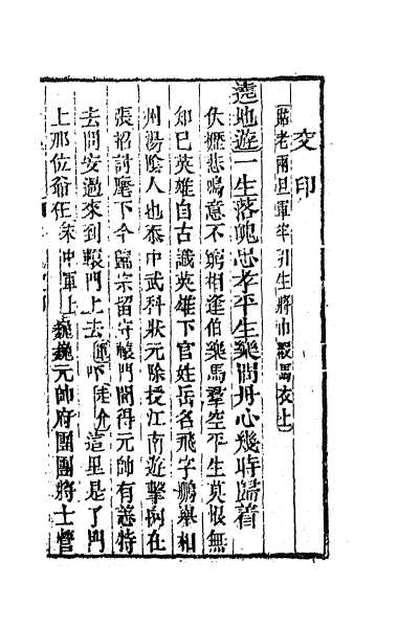 交印
老兩旦軍牢引生將巾馬衣上
遶地遊一生落魄忠孝平生樂問丹心幾時歸着
伏櫪悲鳴意不窮相逢伯樂馬羣空平生莫恨無
知已英雄自古識英雄下官姓岳名飛字鵬舉相
州湯陰人也忝中武科狀元除授江南遊擊例在
張招討麾下今歸宗留守轅門聞得元帥有恙特
去問安過來到轅門上去吓介這里是了門
上那位爺在末冲軍上巍巍元帥府團團將士營